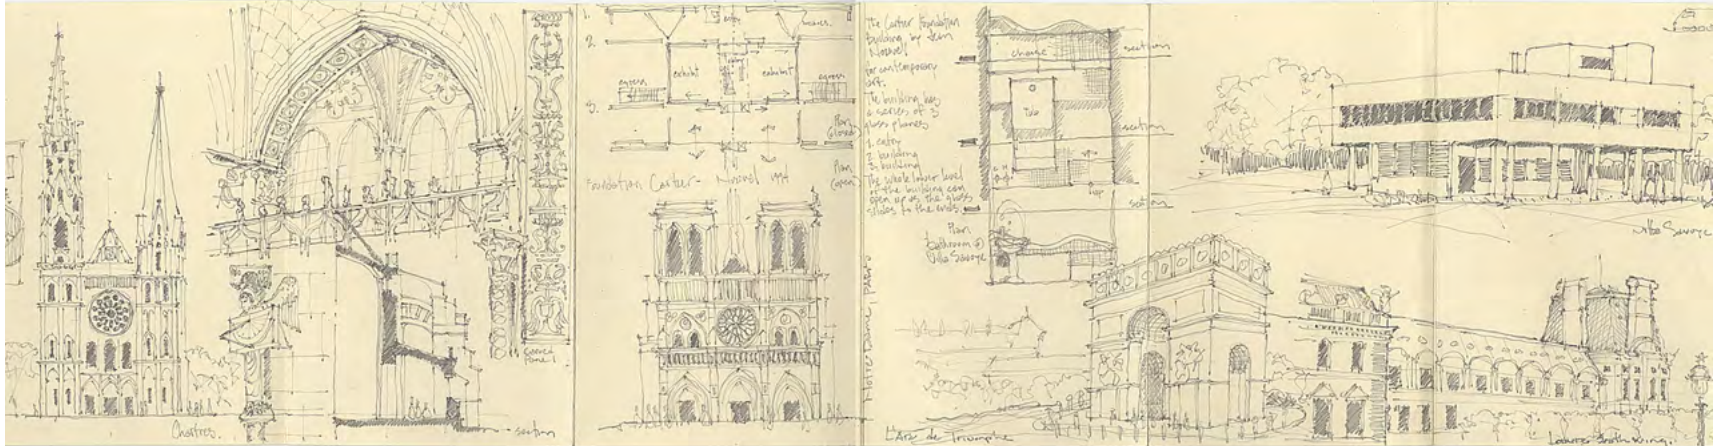 Chartres.
section
carved
panel
1.
2.
3.
entry
exhibit
entry
exhibit
egress
egress
Plan
(closed)
Plan
(open)
Foundation Cartier - Nouvel 1994
Notre Dame, PARIS
The Cartier Foundation
building by Jean
Nouvel
for contemporary
art.
The building has
a series of 3
glass planes
1. entry
2. building
3. building
The whole lower level
of the building can
open up as the glass
slides to the ends.
change
Tub
up
section
section
section
Plan
bathroom @
Villa Savoye
Villa Savoye
L'Arc de Triomphe
Louvre South wing.